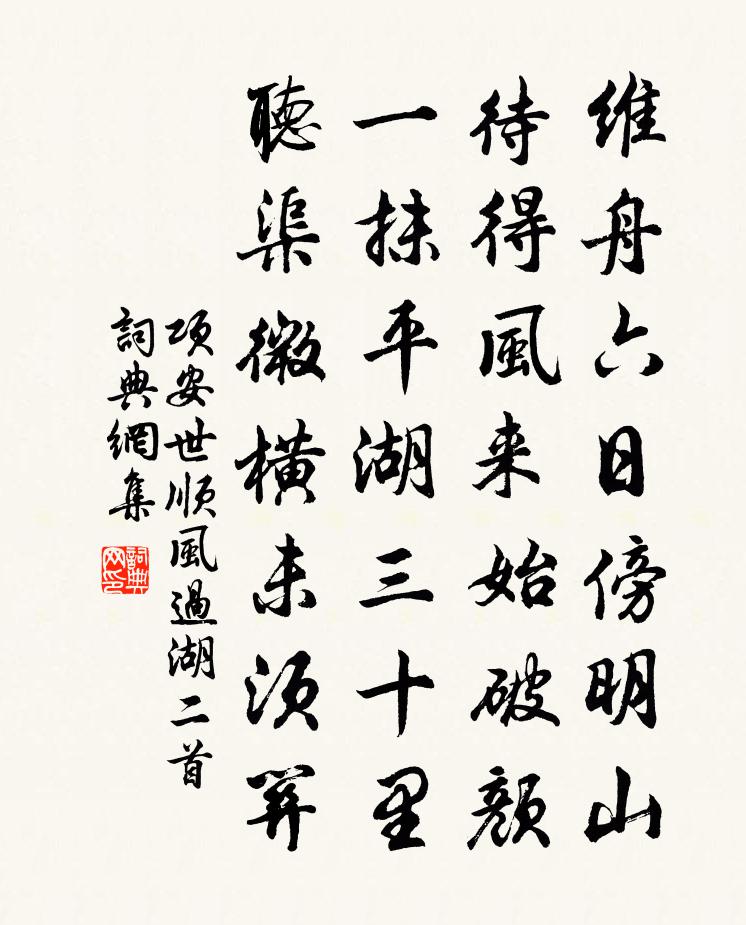 維舟六日傍明山
待得風来始破顏
一抹平湖三十里
聽渠微橫未須關
項安世順風過湖二首
詞典網集
詞典网印